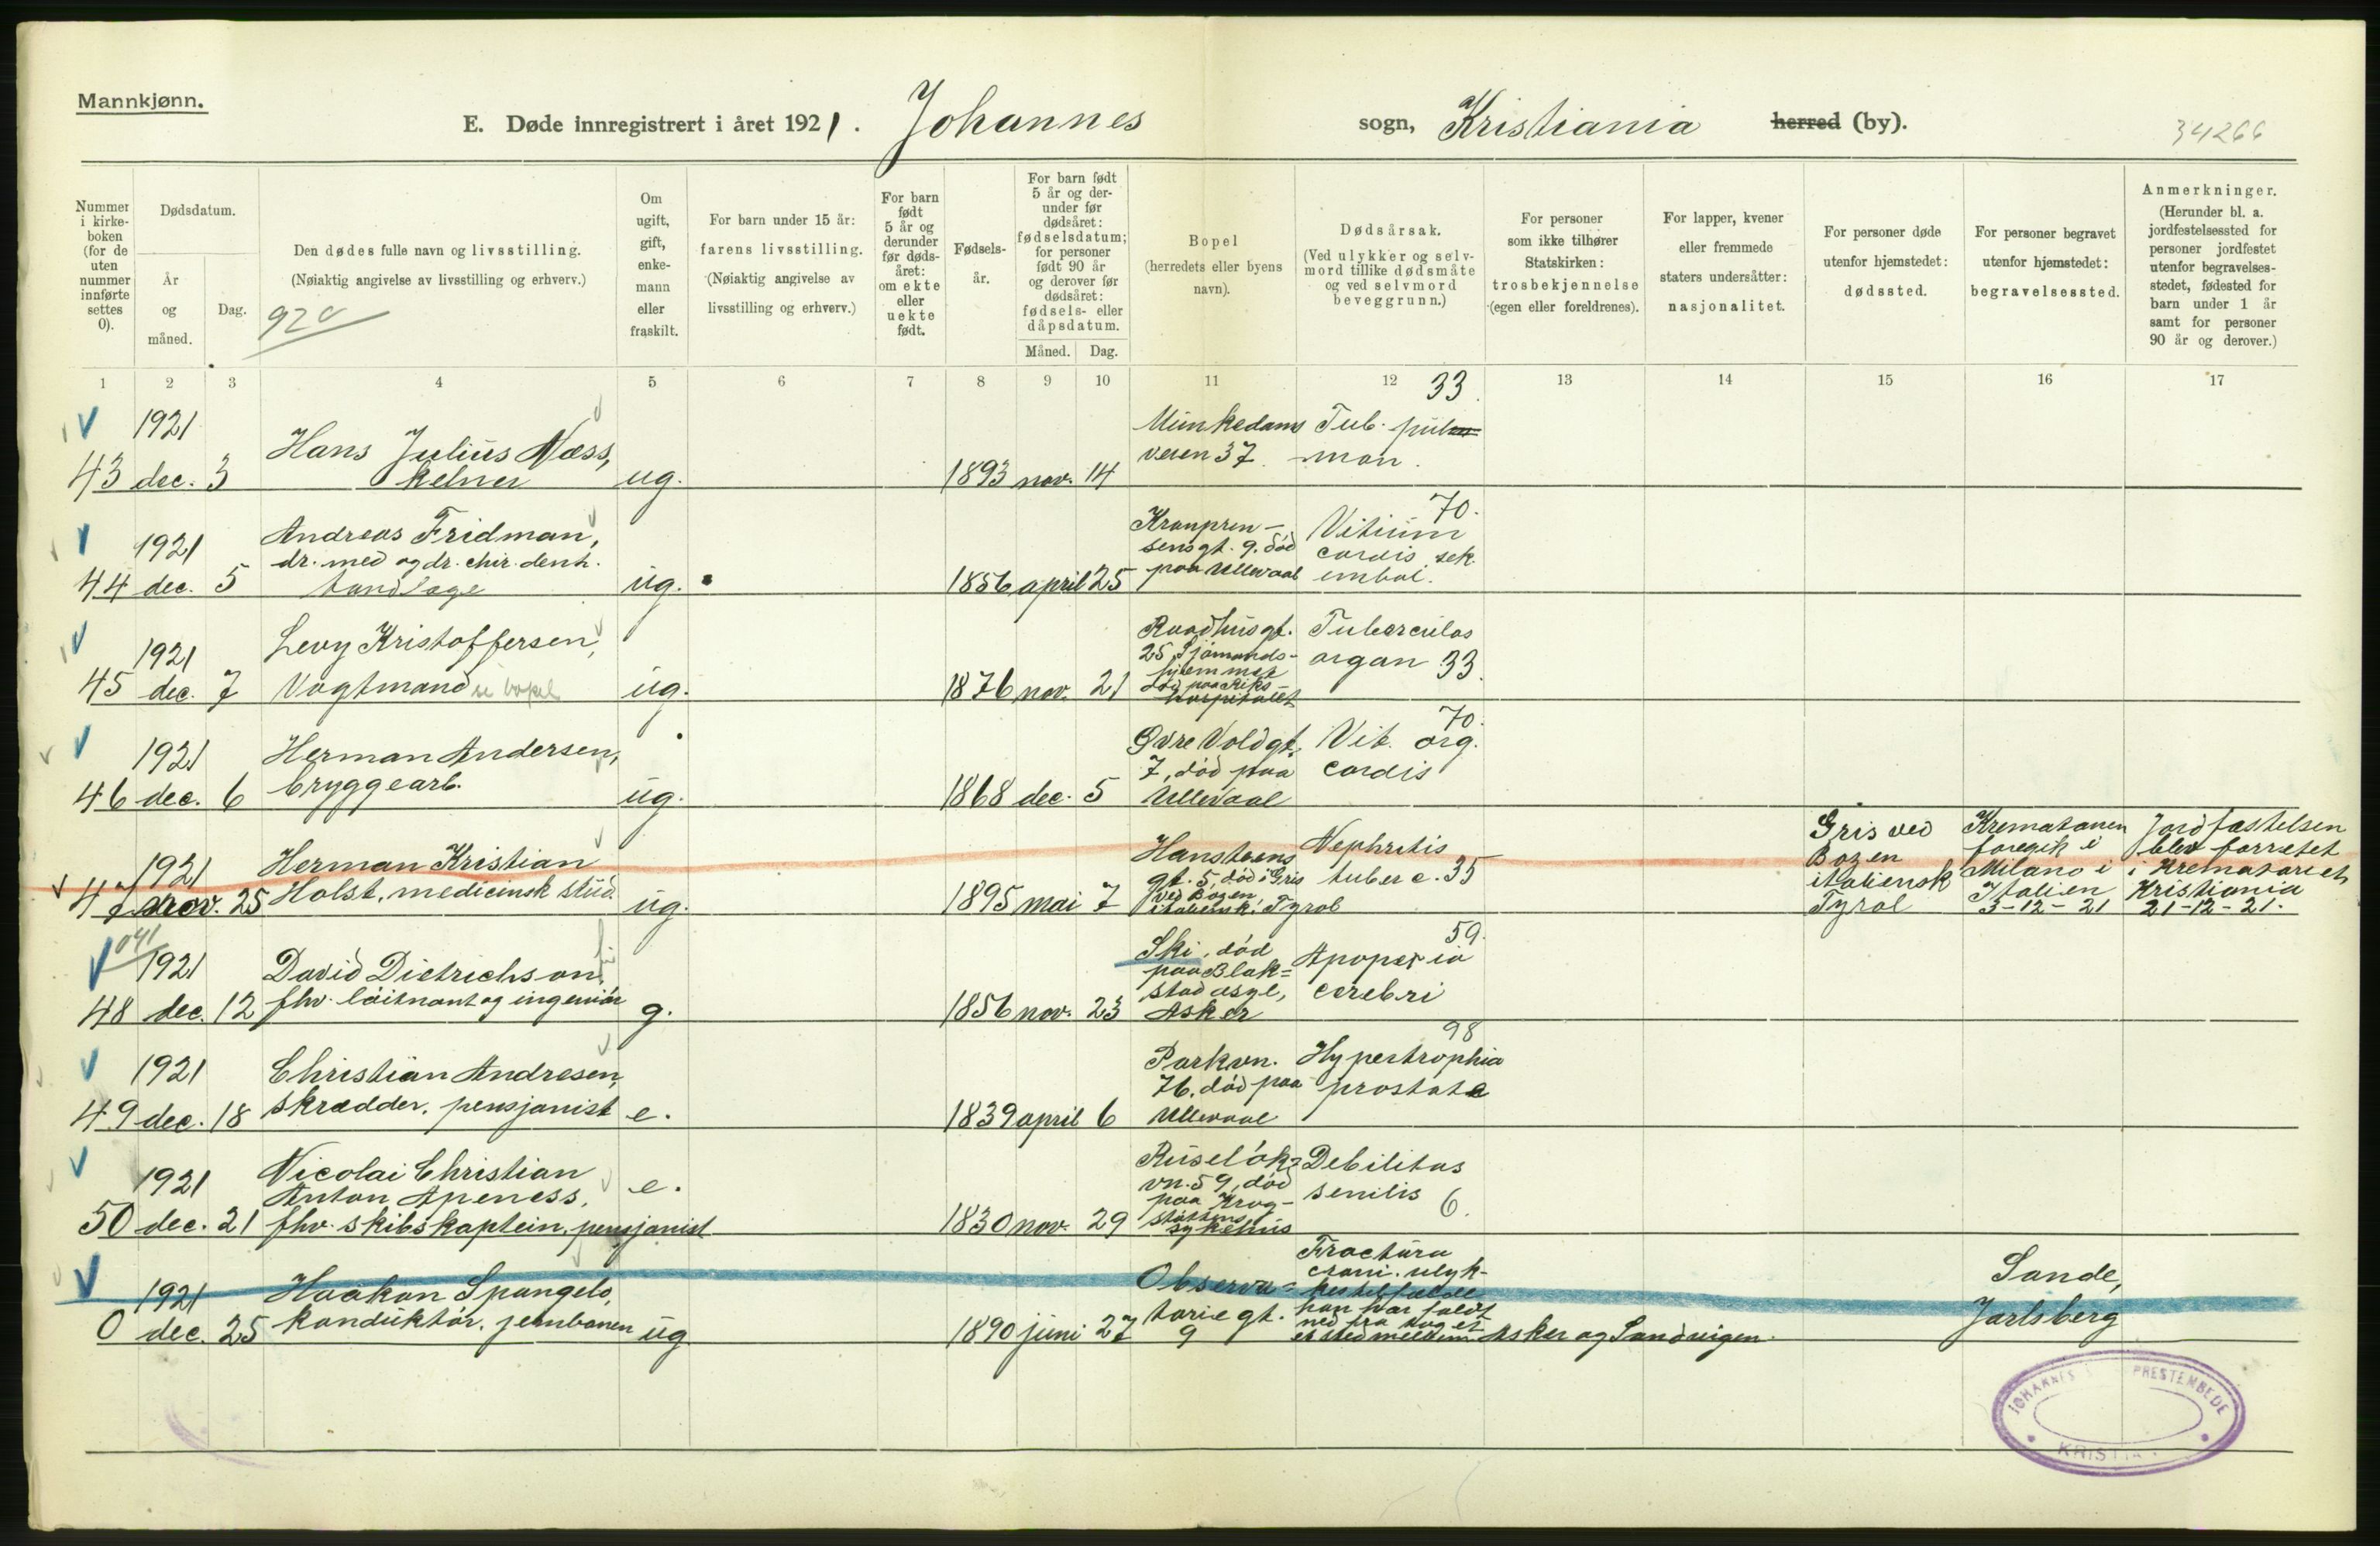 Mannkjønn.
E. Døde innregistrert i året 1921. Johannes sogn, Kristiania herred (by).
34266
Nummer i kirke-boken (for de uten nummer innførte settes 0).
Dødsdatum.
År og måned.
Dag.
Den dødes fulle navn og livsstilling.
(Nøiaktig angivelse av livsstilling og erhverv.)
Om ugift, gift, enke-mann eller fraskilt.
For barn under 15 år:
farens livsstilling.
(Nøiaktig angivelse av livsstilling og erhverv.)
For barn født 5 år og derunder før døds-året: om ekte eller uekte født.
Fødsels-år.
For barn født 5 år og der-under før dødsåret: fødselsdatum; for personer født 90 år og derover før dødsåret: fødsels- eller dåpsdatum.
Måned. Dag.
Bopel
(herredets eller byens navn).
Dødsårsak.
(Ved ulykker og selv-mord tillike dødsmåte og ved selvmord beveggrunn.)
For personer som ikke tilhører Statskirken: trosbekjennelse (egen eller foreldrenes).
For lapper, kvener eller fremmede staters undersåtter: nasjonalitet.
For personer døde utenfor hjemstedet: dødssted.
For personer begravet utenfor hjemstedet: begravelsessted.
Anmerkninger.
(Herunder bl. a. jordfestelsessted for personer jordfestet utenfor begravelses-stedet, fødested for barn under 1 år samt for personer 90 år og derover.)
1 2 3 4 5 6 7 8 9 10 11 12 13 14 15 16 17
43 1921 dec. 3 Hans Julius Næss, kelner ug. 1893 nov. 14 Munkedamsveien 37. Tub. pulmon. 33.
44 1921 dec. 5 Andreas Fridman, dr. med og dr. chir. dent. tandlæge ug. 1856 april 25 Kronprinsensgt. 9. död paa Ullevaal Vitium cordis sek. emboi. 70.
45 1921 dec. 7 Levy Kristoffersen, Vogtmand ug. 1876 nov. 21 Raadhusgt. 25, Sjömandshjemmet död paa Rikshospitalet Tuberculos organ 33.
46 1921 dec. 6 Herman Andersen, bryggearb. ug. 1868 dec. 5 Övre Voldgt. 7, död paa Ullevaal Vit. org. cordis 70.
47 1921 nov. 25 Herman Kristian Holst, medicinsk stud. ug. 1895 mai 7 Hansteensgt. 5, död i Gris ved Bozen italiensk Tyrol Nephritis tuberc. 35 Gris ved Bozen italiensk Tyrol Kremationen foregik i Milano i Italien 3-12-21 Jordfæstelsen blev forrettet i Krematoriet Kristiania 21-12-21.
48 1921 dec. 12 David Dietrichson, fhv. löitnant og ingeniör g. 1856 nov. 23 Ski, död paa Blakstad asyl, Asker Apopexia cerebri 59.
49 1921 dec. 18 Christian Andresen, skrædder, pensjonist e. 1839 april 6 Parkvn. 76, död paa Ullevaal Hypertrophia prostate 98
50 1921 dec. 21 Nicolai Christian Anton Apeness, fhv. skibskaptein, pensjonist e. 1830 nov. 29 Ruselökvn. 59, död paa Krogstöttens sykehus Debilitas senilis 6.
0 1921 dec. 25 Haakon Spangelo, konduktör, jernbanen ug 1890 juni 27 Observatoriegt. 9 Fractura crani. ulykkestilfælde han har faldt ned fra toget et sted mellem Asker og Sandvigen. Sande, Jarlsberg
JOHANNES PRESTEMBEDE
KRISTIA